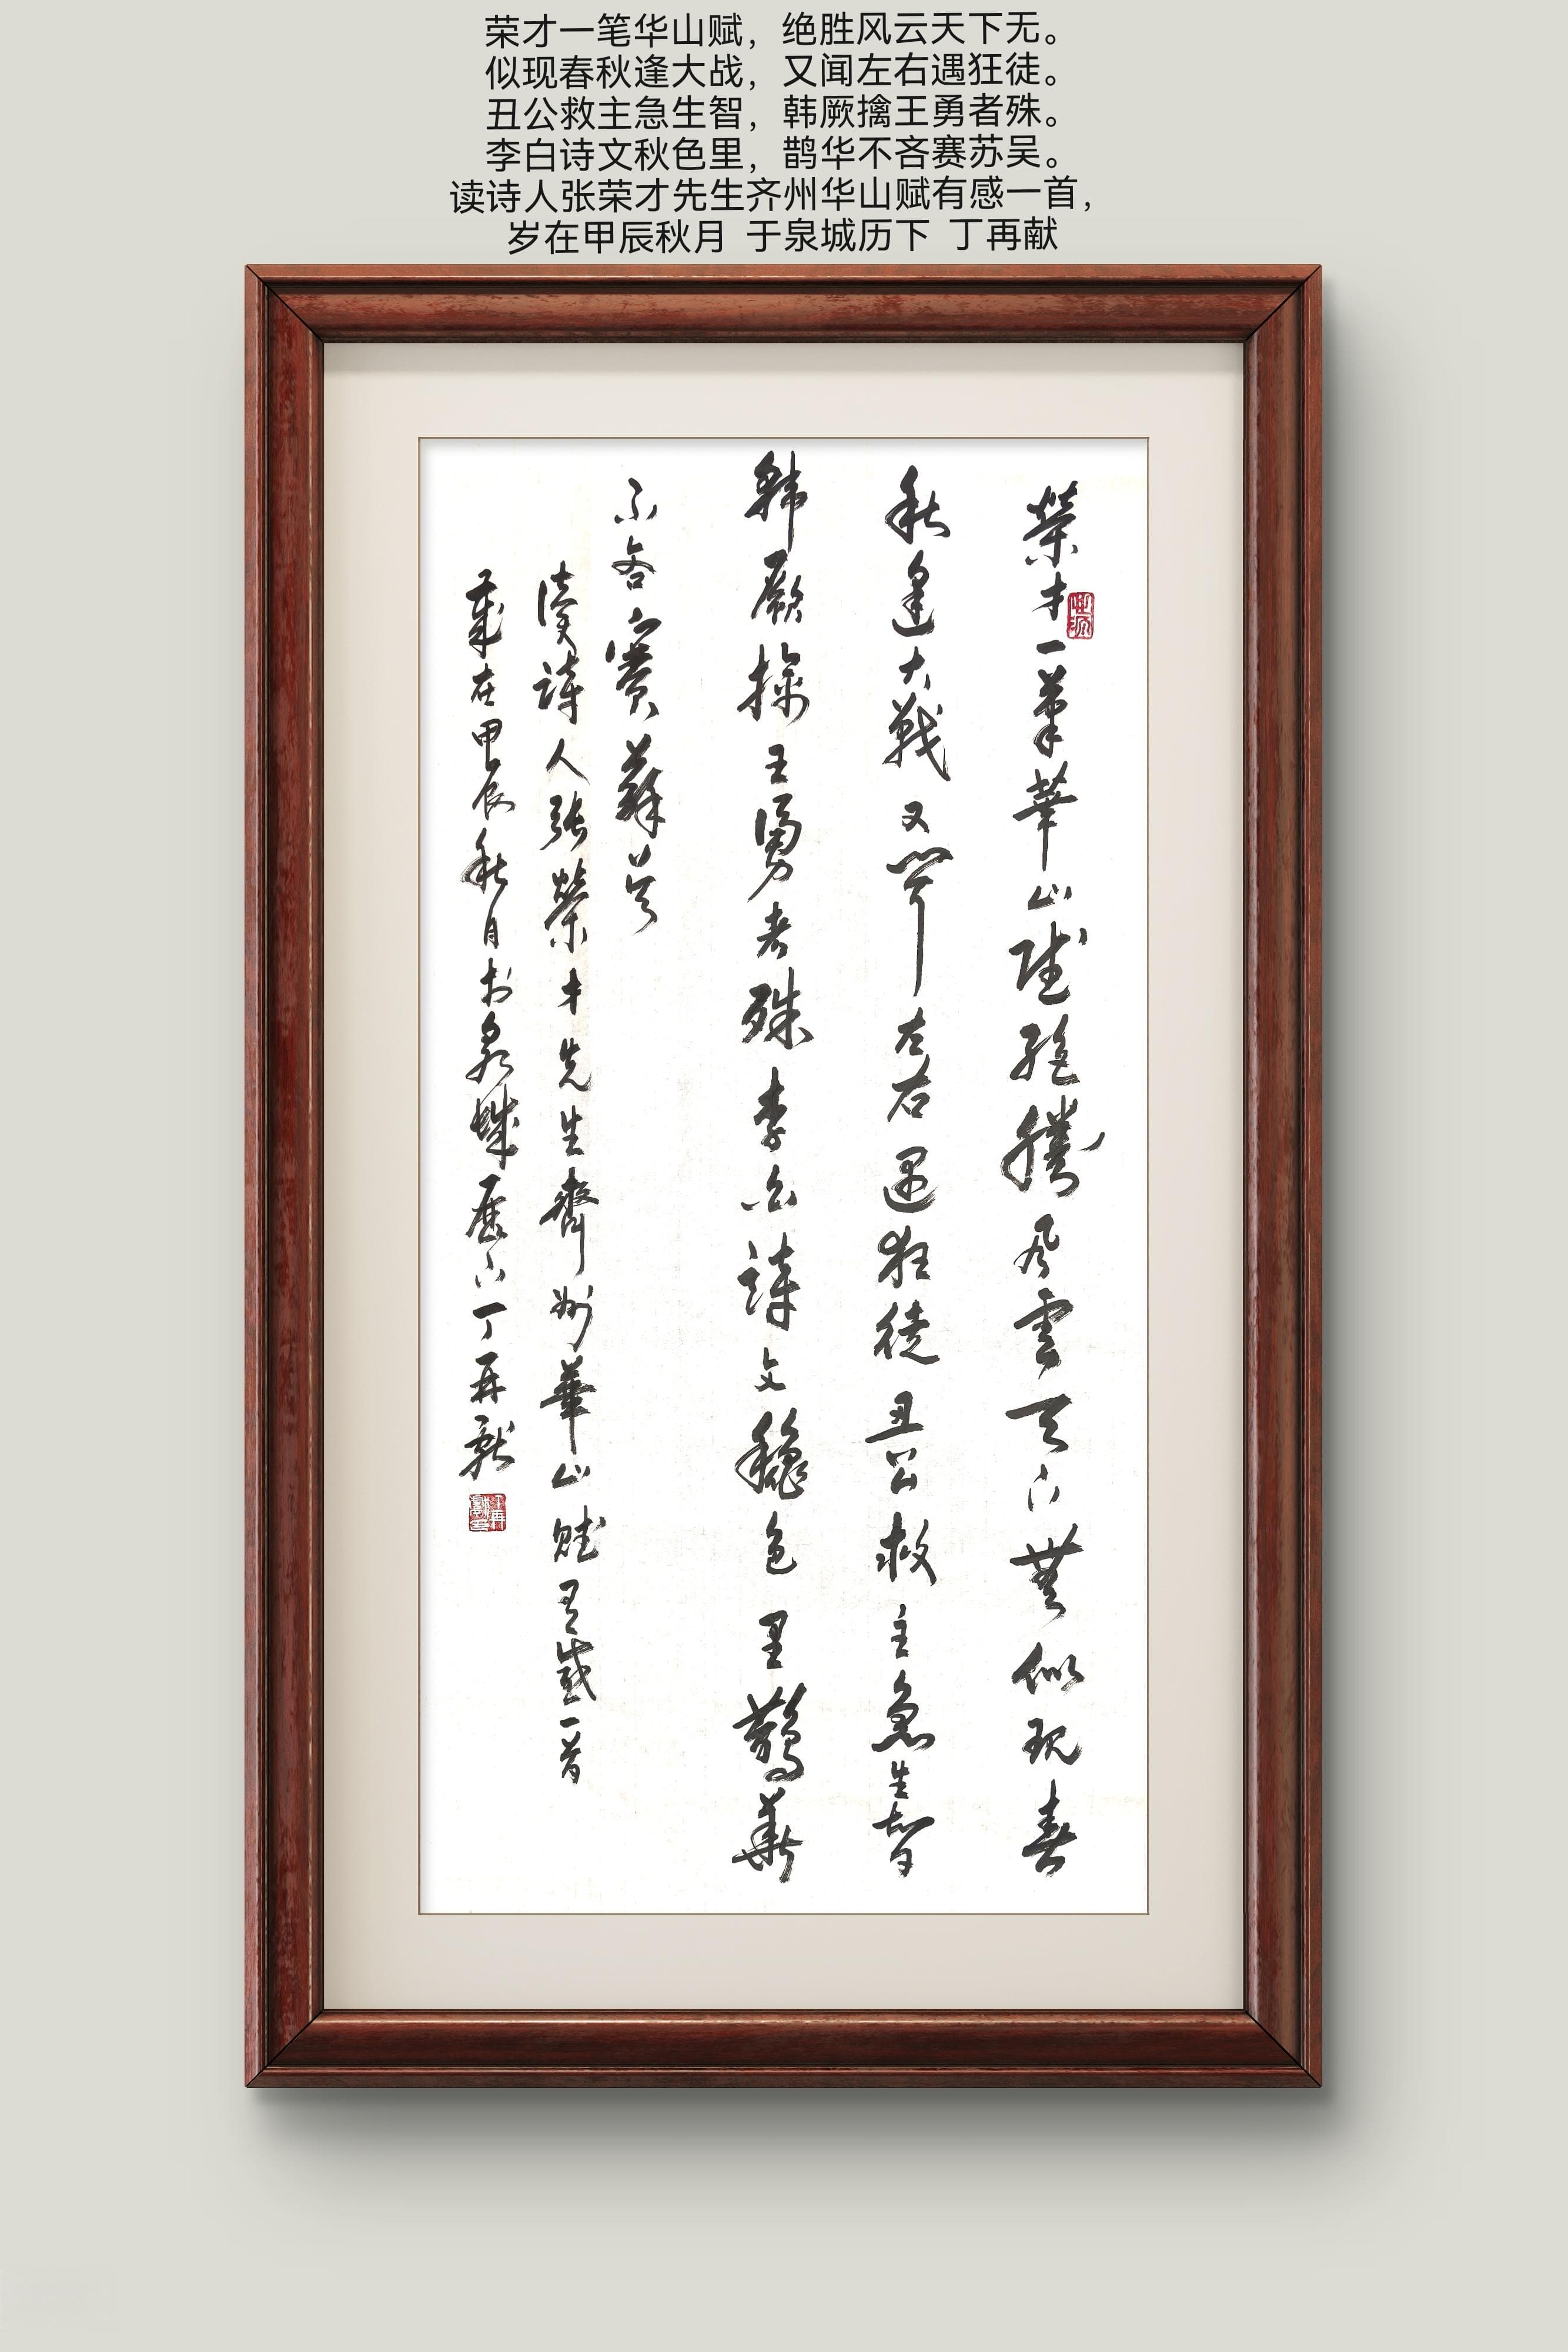 荣才一笔华山赋，绝胜风云天下无。
似现春秋逢大战，又闻左右遇狂徒。
丑公救主急生智，韩厥擒王勇者殊。
李白诗文秋色里，鹊华不吝赛苏吴。
读诗人张荣才先生齐州华山赋有感一首，
岁在甲辰秋月 于泉城历下 丁再献
榮才一筆華山賦絕勝風雲天下無似現春
秋逢大戰又聞左右遇狂徒丑公救主急生智
韓厥擒王勇者殊李白詩文穐色里鵲華
不吝賽蘇吴
讀詩人張榮才先生齊州華山賦有感一首
歲在甲辰秋月於泉城歷下丁再献